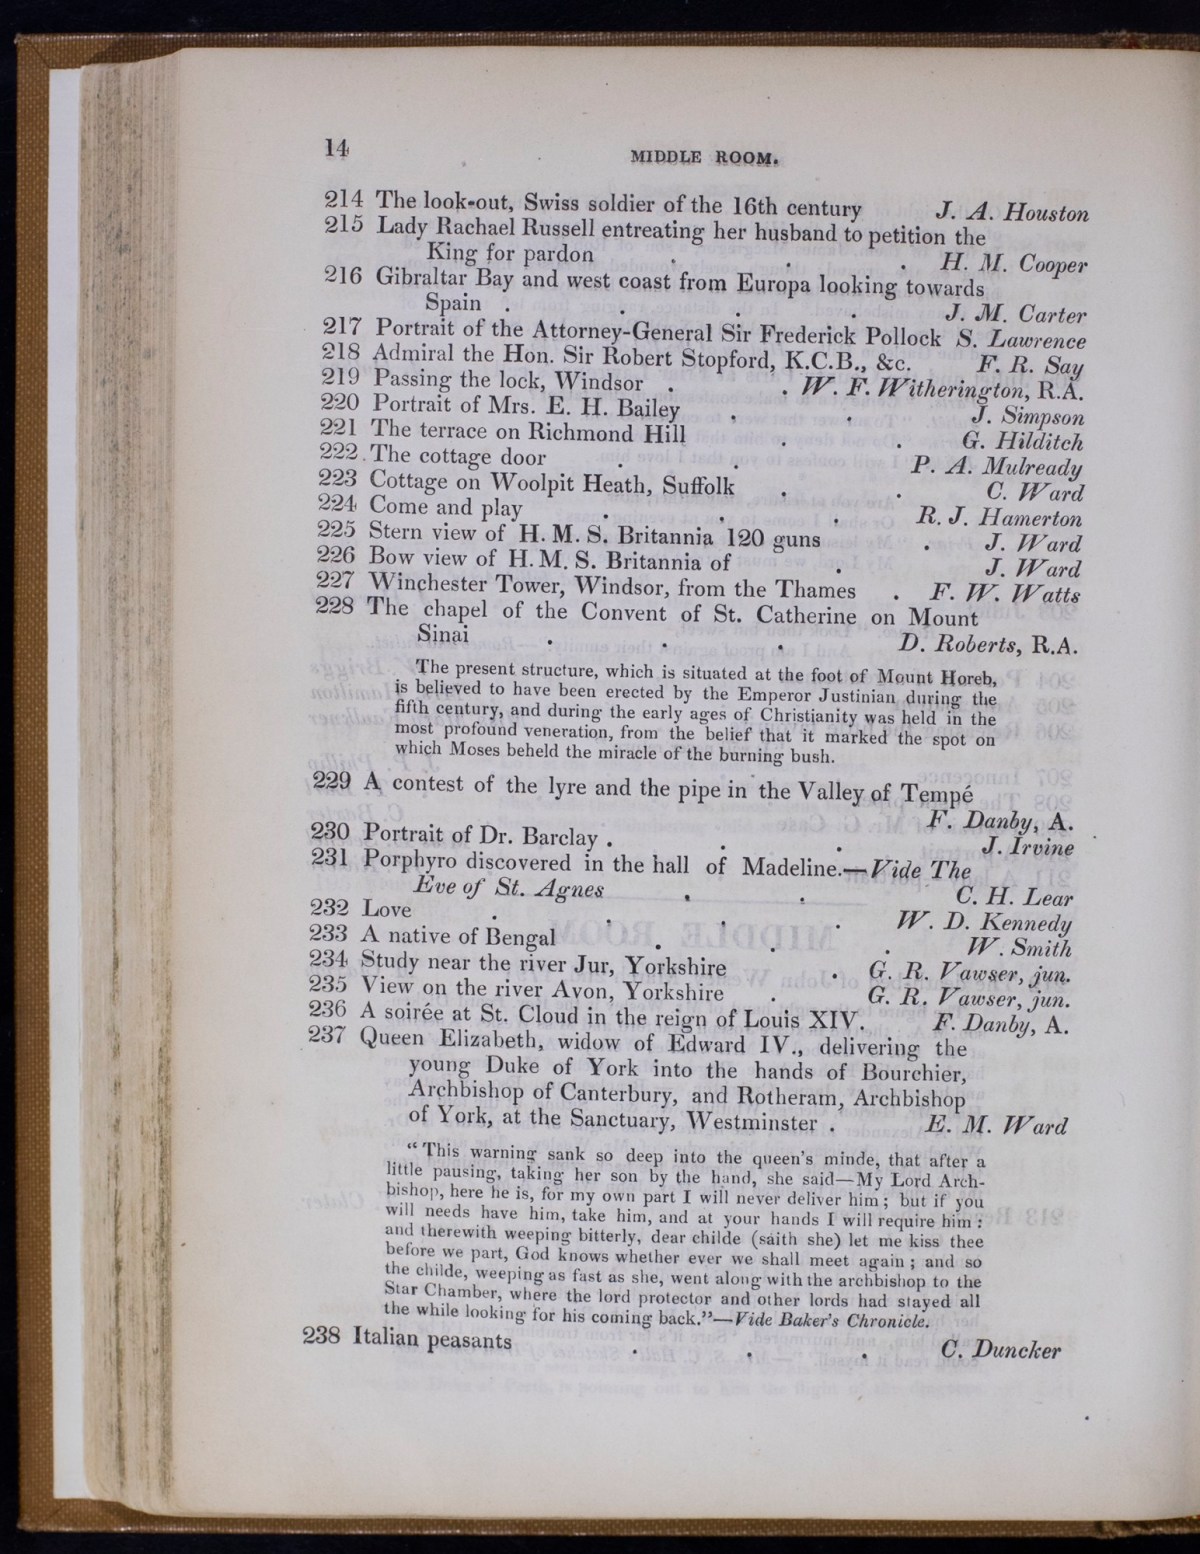 14
MIDDLE ROOM.
214 The look-out, Swiss soldier of the 16th century J. A. Houston
215 Lady Rachael Russell entreating her husband to petition the
King for pardon . . . H. M. Cooper
216 Gibraltar Bay and west coast from Europa looking towards
Spain . . . . J. M. Carter
217 Portrait of the Attorney-General Sir Frederick Pollock S. Lawrence
218 Admiral the Hon. Sir Robert Stopford, K.C.B., &c. F. R. Say
219 Passing the lock, Windsor . . W. F. Witherington, R.A.
220 Portrait of Mrs. E. H. Bailey . . J. Simpson
221 The terrace on Richmond Hill . . G. Hilditch
222 The cottage door . . P. A. Mulready
223 Cottage on Woolpit Heath, Suffolk . . C. Ward
224 Come and play . . . R. J. Hamerton
225 Stern view of H. M. S. Britannia 120 guns . J. Ward
226 Bow view of H. M. S. Britannia of . J. Ward
227 Winchester Tower, Windsor, from the Thames . F. W. Watts
228 The chapel of the Convent of St. Catherine on Mount
Sinai . . . D. Roberts, R.A.
The present structure, which is situated at the foot of Mount Horeb,
is believed to have been erected by the Emperor Justinian during the
fifth century, and during the early ages of Christianity was held in the
most profound veneration, from the belief that it marked the spot on
which Moses beheld the miracle of the burning bush.
229 A contest of the lyre and the pipe in the Valley of Tempé
F. Danby, A.
230 Portrait of Dr. Barclay . . . J. Irvine
231 Porphyro discovered in the hall of Madeline.—Vide The
Eve of St. Agnes . . C. H. Lear
232 Love . . . . W. D. Kennedy
233 A native of Bengal . . . W. Smith
234 Study near the river Jur, Yorkshire . G. R. Vawser, jun.
235 View on the river Avon, Yorkshire . G. R. Vawser, jun.
236 A soirée at St. Cloud in the reign of Louis XIV. F. Danby, A.
237 Queen Elizabeth, widow of Edward IV., delivering the
young Duke of York into the hands of Bourchier,
Archbishop of Canterbury, and Rotheram, Archbishop
of York, at the Sanctuary, Westminster . E. M. Ward
"This warning sank so deep into the queen's minde, that after a
little pausing, taking her son by the hand, she said—My Lord Arch-
bishop, here he is, for my own part I will never deliver him; but if you
will needs have him, take him, and at your hands I will require him:
and therewith weeping bitterly, dear childe (saith she) let me kiss thee
before we part, God knows whether ever we shall meet again; and so
the childe, weeping as fast as she, went along with the archbishop to the
Star Chamber, where the lord protector and other lords had stayed all
the while looking for his coming back."—Vide Baker's Chronicle.
238 Italian peasants . . . C. Duncker